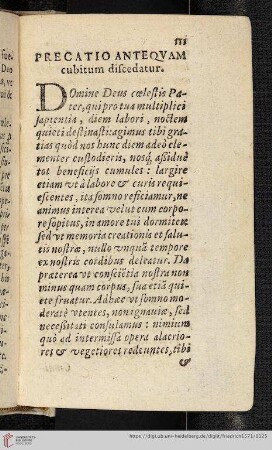 111
PRECATIO ANTEQVAM
cubitum discedatur.
DOmine Deus cœlestis Pa-
ter, qui pro tua multiplici
sapientia, diem labori, noctem
quieti destinasti: agimus tibi gra-
tias quòd nos hunc diem adeò cle-
menter custodieris, nosq́; assiduè
tot beneficijs cumules: largire
etiam vt à labore & curis requi-
escentes, ita somno reficiamur, ne
animus interea velut cum corpo-
re sopitus, in amore tui dormitet:
sed vt memoria creationis et salu-
tis nostræ, nullo vnquã tempore
ex nostris cordibus deleatur. Da
præterea vt consciẽtia nostra non
minus quam corpus, sua etiã qui-
ete fruatur. Adhæc vt somno mo-
deratè vtentes, non ignauiæ, sed
necessitati consulamus: nimium
quò ad intermissa opera alacrio-
res & vegetiores redeuntes, tibi
&
https://digi.ub.uni-heidelberg.de/diglit/friedrich1571/0125